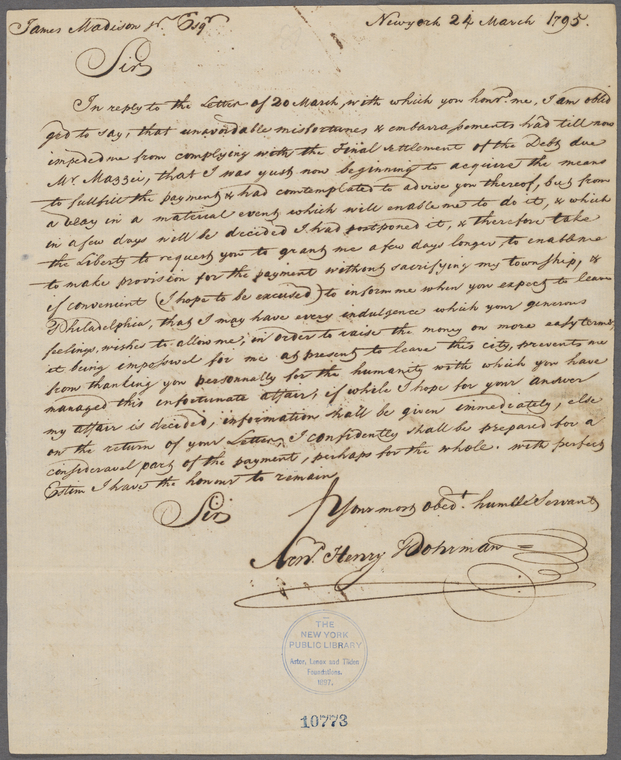 James Madison Jr. Esqr Newyork 24 March 1795.
Sir
In reply to the Letter of 20 March, with which you honrd. me, I am obli
ged to say, that unavoidable misfortunes & embarrassments had till now
impeded me from complying with the Final settlement of the Debt due
Mr. Mazzei, that I was just now beginning to acquire the means
to fullfill the payment & had contemplated to advise you thereof, but from
a delay in a material event which will enable me to do it, & which
in a few days will be decided I had postponed it, & therefore take
the Liberty to request you to grant me a few days longer, to enable me
to make provision for the payment without sacrifying my township, &
if convenient (I hope to be excused) to inform me when you expect to leave
Philadelphia, that I may have every indulgence which your generous
feelings, wishes to allow me; in order to raise the money on more easy terms,
it being impossivel for me at present to leave this city, prevents me
from thanking you personnally for the humanity with which you have
managed this infortunate affair; if while I hope for your answer
my affair is decided, information shall be given immediately, else
on the return of your Letter, I confidently shall be prepared for a
consideravel part of the payment, perhaps for the whole. with perfect
Estim I have the honour to remain
Sir
Your most obedt. humble Servant
Arnd. Henry Dohrman
THE
NEW YORK
PUBLIC LIBRARY
Astor, Lenox and Tilden
Foundations.
1897.
10773